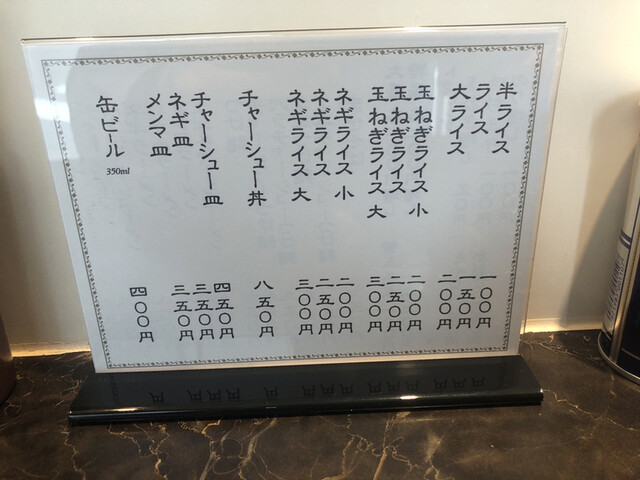 半ライス 一〇〇円
ライス 一五〇円
大ライス 二〇〇円
玉ねぎライス 小 二〇〇円
玉ねぎライス 二五〇円
玉ねぎライス 大 三〇〇円
ネギライス 小 二〇〇円
ネギライス 二五〇円
ネギライス 大 三〇〇円
チャーシュー丼 八五〇円
チャーシュー皿 四五〇円
ネギ皿 三五〇円
メンマ皿 三五〇円
缶ビール 350ml 四〇〇円